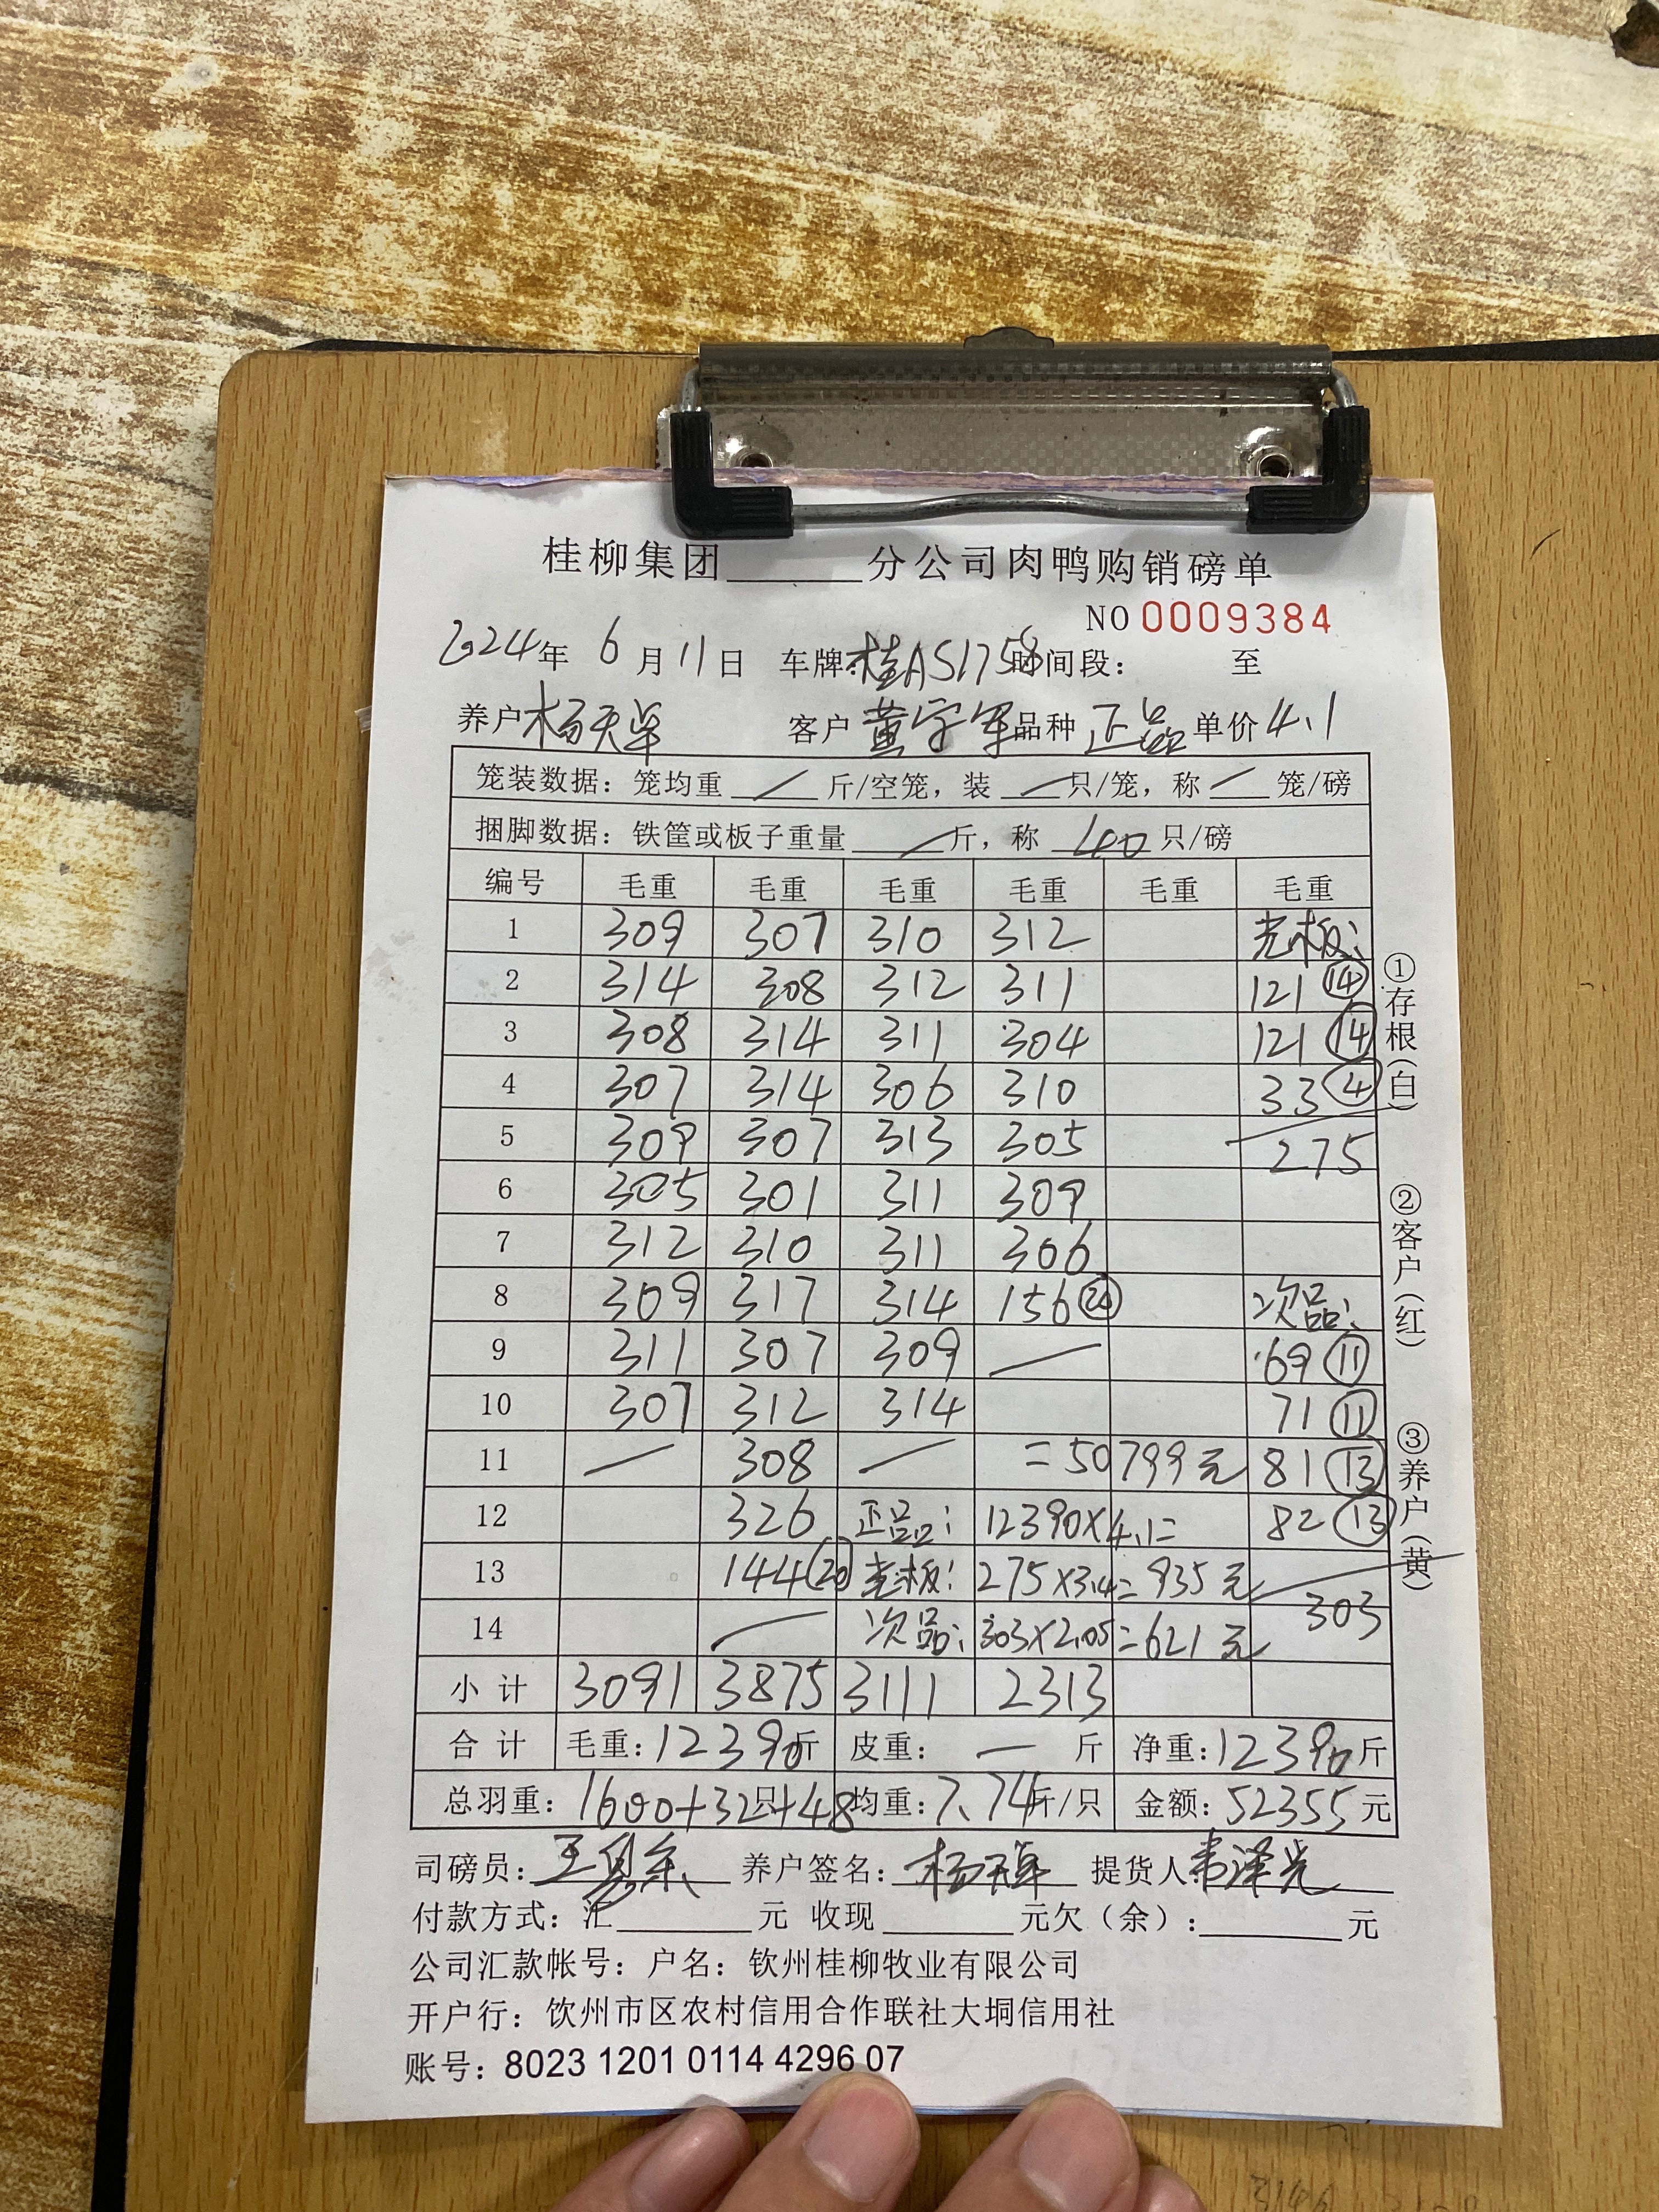 桂柳集团______分公司肉鸭购销磅单
NO 0009384
2024年 6月11日 车牌:桂AS1758 时间段: 至
养户 杨天军 客户 黄宇军 品种 正品 单价 4.1
笼装数据：笼均重 / 斤/空笼，装 / 只/笼，称 / 笼/磅
捆脚数据：铁筐或板子重量 / 斤，称 40 只/磅
编号 毛重 毛重 毛重 毛重 毛重 毛重
1 309 307 310 312 光板:
2 314 308 312 311 121 ⑭
3 308 314 311 304 121 ⑭
4 307 314 306 310 33 ④
5 309 307 313 305 275
6 305 301 311 309
7 312 310 311 306
8 309 317 314 156 ⑳ 次品:
9 311 307 309 / 69 ⑪
10 307 312 314 71 ⑪
11 / 308 / =50799元 81 ⑬
12 326 正品: 12390×4.1= 82 ⑬
13 144 ⑳ 光板: 275×3.4=935元
14 / 次品: 303×2.05=621元 303
小计 3091 3875 3111 2313
合计 毛重: 12390斤 皮重: — 斤 净重: 12390斤
总羽重: 1600+32+48只 均重: 7.74斤/只 金额: 52355元
司磅员: 养户签名: 杨天军 提货人 韦泽光
付款方式: 汇______元 收现______元欠（余）:______元
公司汇款帐号: 户名: 钦州桂柳牧业有限公司
开户行: 饮州市区农村信用合作联社大垌信用社
账号: 8023 1201 0114 4296 07
①存根（白）
②客户（红）
③养户（黄）